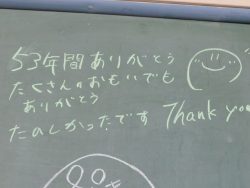 53年間ありがとう
たくさんのおもいでも
ありがとう
たのしかったです
Thank you